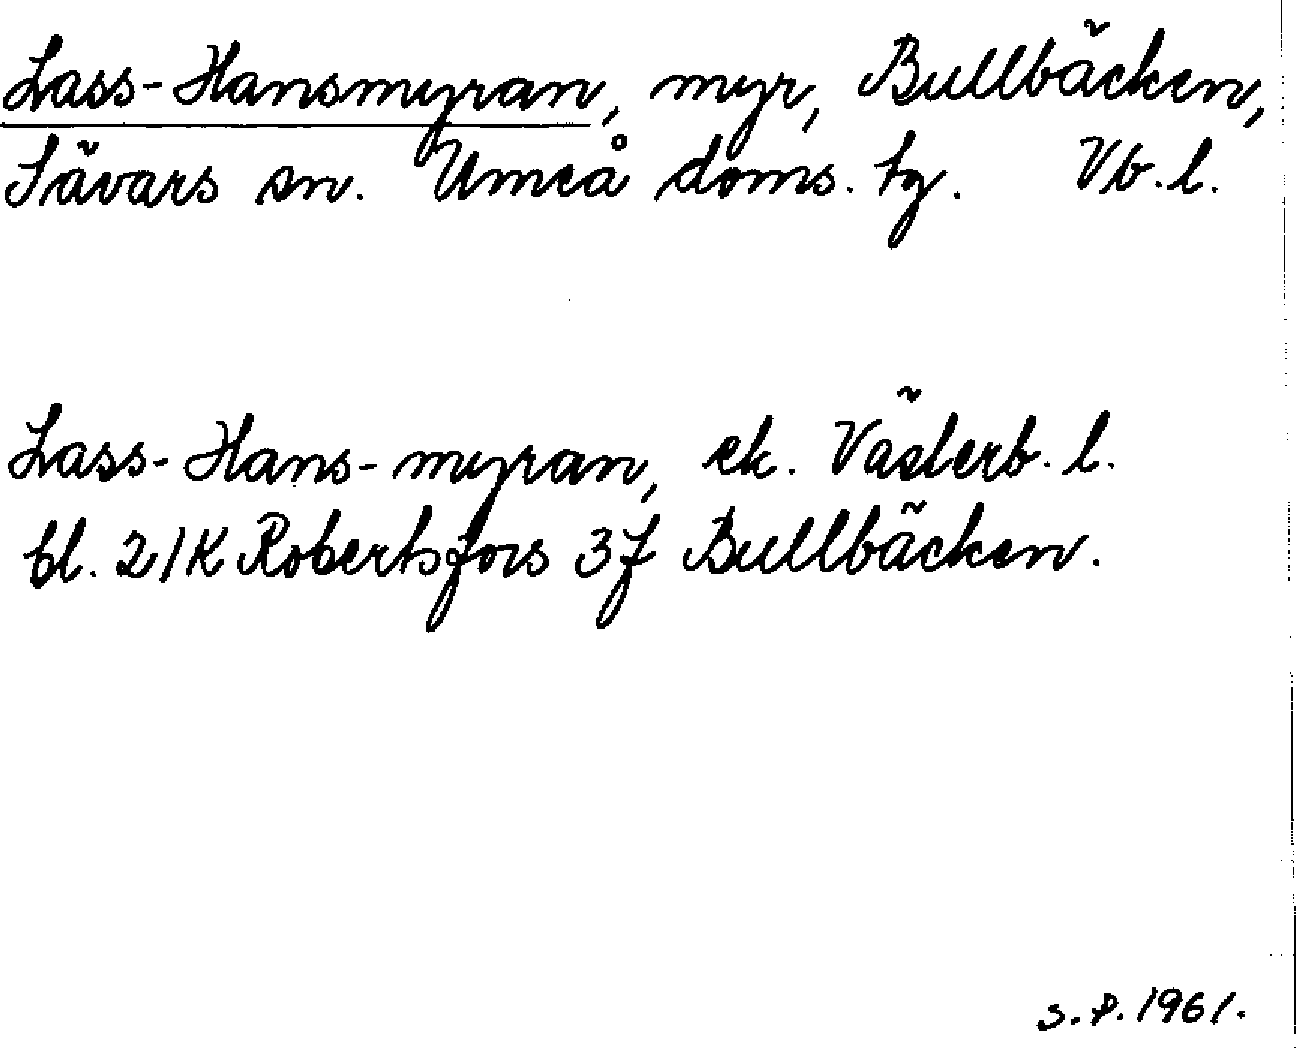 Lass-Hansmyran, myr, Bullbäcken,
Sävars sn. Umeå doms. tg. Vb.l.
Lass-Hans-myran, ek. Västerb. l.
bl. 21K Robertsfors 3f Bullbäcken.
S.P. 1961.